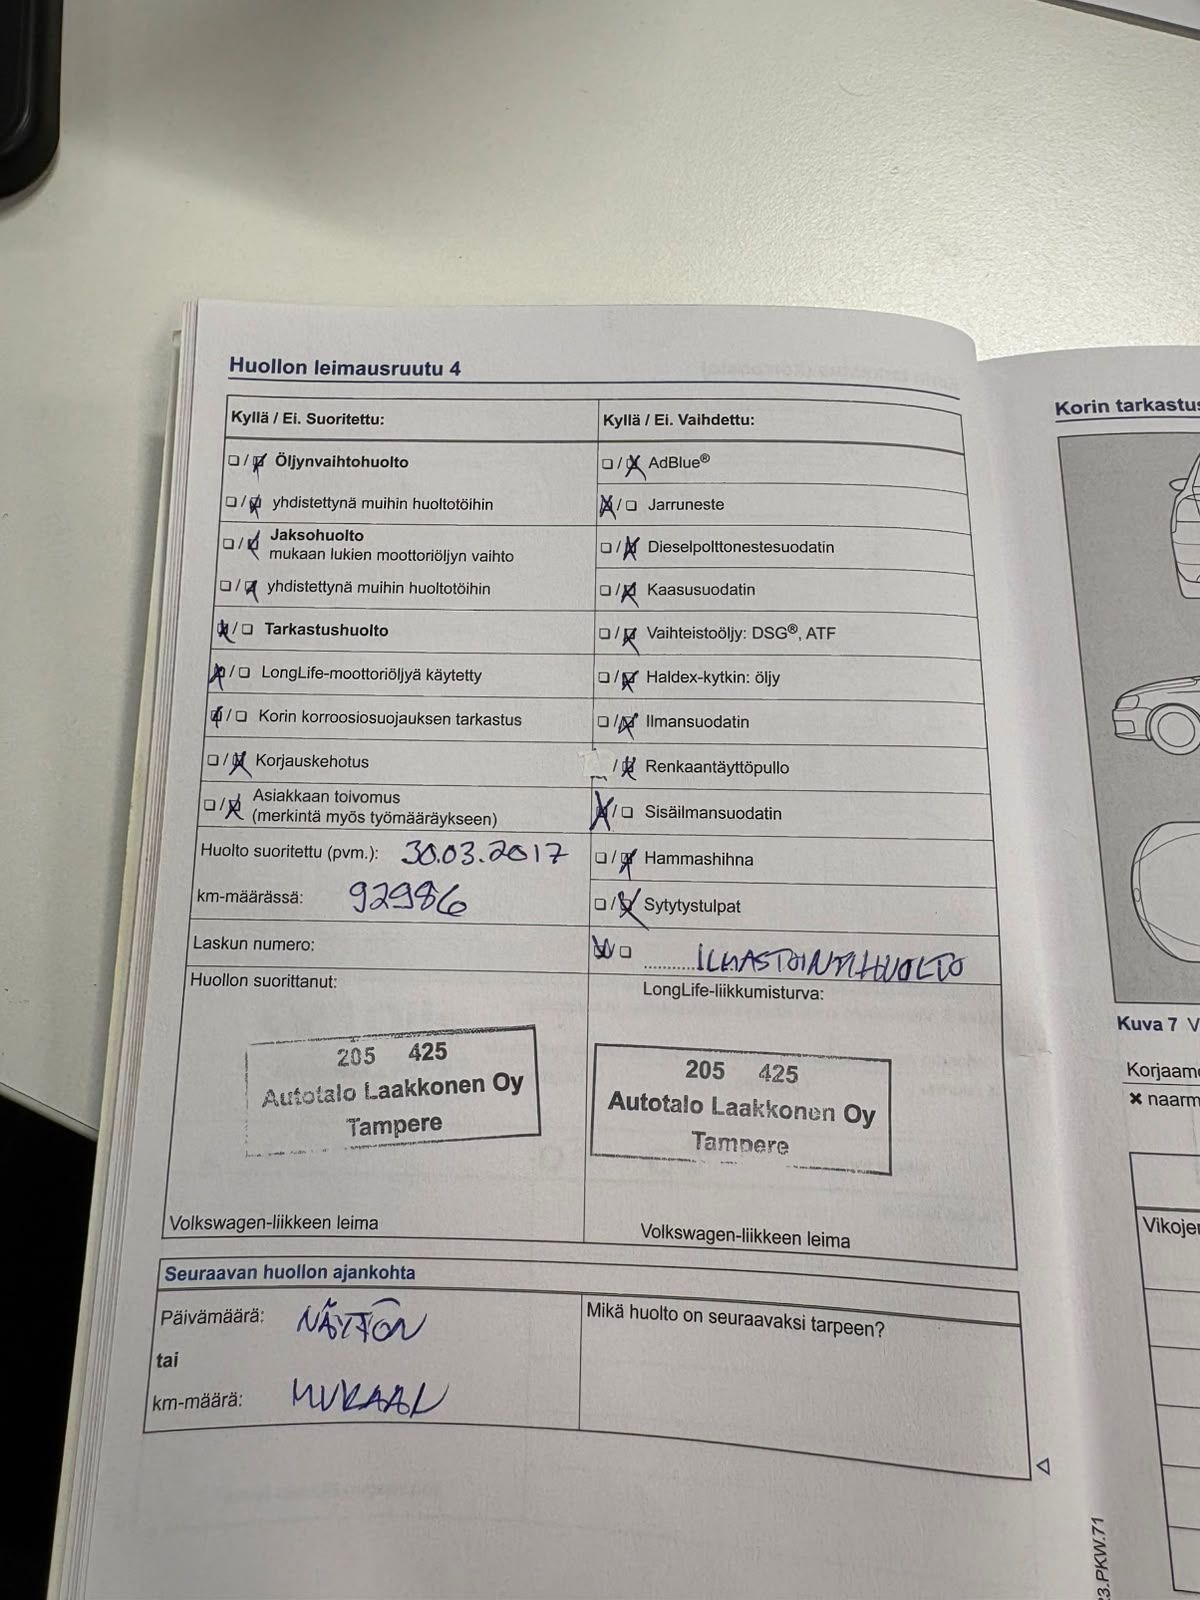 Huollon leimausruutu 4
Kyllä / Ei. Suoritettu:
Öljynvaihtohuolto
yhdistettynä muihin huoltotöihin
Jaksohuolto
mukaan lukien moottoriöljyn vaihto
yhdistettynä muihin huoltotöihin
Tarkastushuolto
LongLife-moottoriöljyä käytetty
Korin korroosiosuojauksen tarkastus
Korjauskehotus
Asiakkaan toivomus
(merkintä myös työmääräykseen)
Huolto suoritettu (pvm.): 30.03.2017
km-määrässä: 92986
Laskun numero:
Huollon suorittanut:
205 425
Autotalo Laakkonen Oy
Tampere
Volkswagen-liikkeen leima
Kyllä / Ei. Vaihdettu:
AdBlue®
Jarruneste
Dieselpolttonestesuodatin
Kaasusuodatin
Vaihteistoöljy: DSG®, ATF
Haldex-kytkin: öljy
Ilmansuodatin
Renkaantäyttöpullo
Sisäilmansuodatin
Hammashihna
Sytytystulpat
ILMASTOINTIHUOLTO
LongLife-liikkumisturva:
205 425
Autotalo Laakkonen Oy
Tampere
Volkswagen-liikkeen leima
Seuraavan huollon ajankohta
Päivämäärä: NÄYTÖN
tai
km-määrä: MUKAAN
Mikä huolto on seuraavaksi tarpeen?
Korin tarkastus
Kuva 7 V
Korjaamo
✖ naarm
Vikojen
3.PKW.71